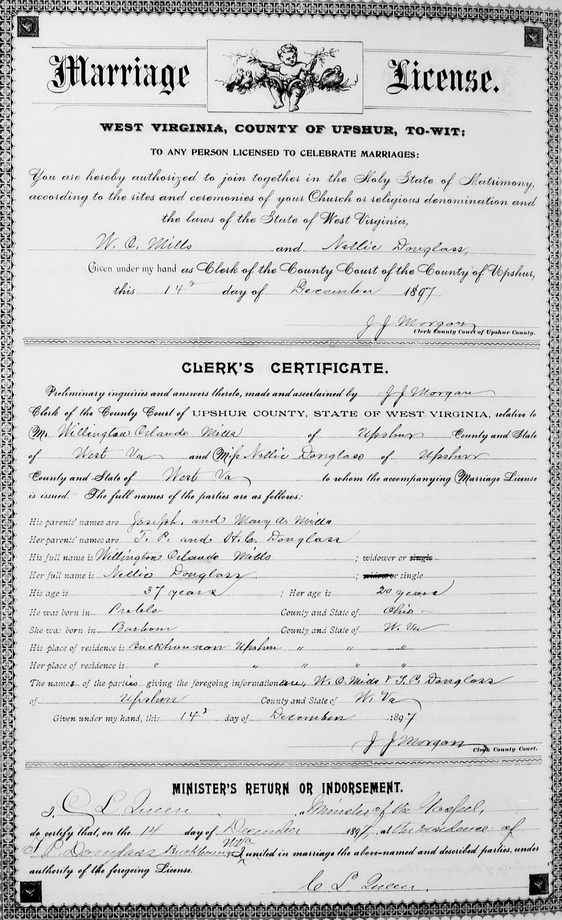 Marriage License.
WEST VIRGINIA, COUNTY OF UPSHUR, TO-WIT:
TO ANY PERSON LICENSED TO CELEBRATE MARRIAGES:
You are hereby authorized to join together in the Holy State of Matrimony,
according to the rites and ceremonies of your Church or religious denomination and
the laws of the State of West Virginia,
W. O. Mills and Nellie Douglass,
Given under my hand as Clerk of the County Court of the County of Upshur,
this 14" day of December 1897
J J Morgan
Clerk County Court of Upshur County.
CLERK'S CERTIFICATE.
Preliminary inquiries and answers thereto, made and ascertained by J J Morgan
Clerk of the County Court of UPSHUR COUNTY, STATE OF WEST VIRGINIA, relative to
Mr. Willington Orlando Mills of Upshur County and State
of West Va and Miss Nellie Douglass of Upshur
County and State of West Va to whom the accompanying Marriage License
is issued. The full names of the parties are as follows:
His parents' names are Joseph and Mary A. Mills
Her parents' names are T. P. and H. C. Douglass
His full name is Wellington Orlando Mills ; widower or single
Her full name is Nellie Douglass ; widow or single
His age is 37 years ; Her age is 20 years
He was born in Preble County and State of Ohio
She was born in Barbour County and State of W. Va
His place of residence is Buckhannon Upshur " " "
Her place of residence is " " " " "
The names of the parties giving the foregoing information are, W. O. Mills & T. P. Douglass
of Upshur County and State of W. Va
Given under my hand, this 14" day of December 1897
J J Morgan Clerk County Court.
MINISTER'S RETURN OR INDORSEMENT.
I, C L Queen a Minister of the Gospel,
do certify that, on the 14 day of December 1897, at the residence of
T P Douglass Buckhannon W Va I united in marriage the above-named and described parties, under
authority of the foregoing License.
C L Queen.